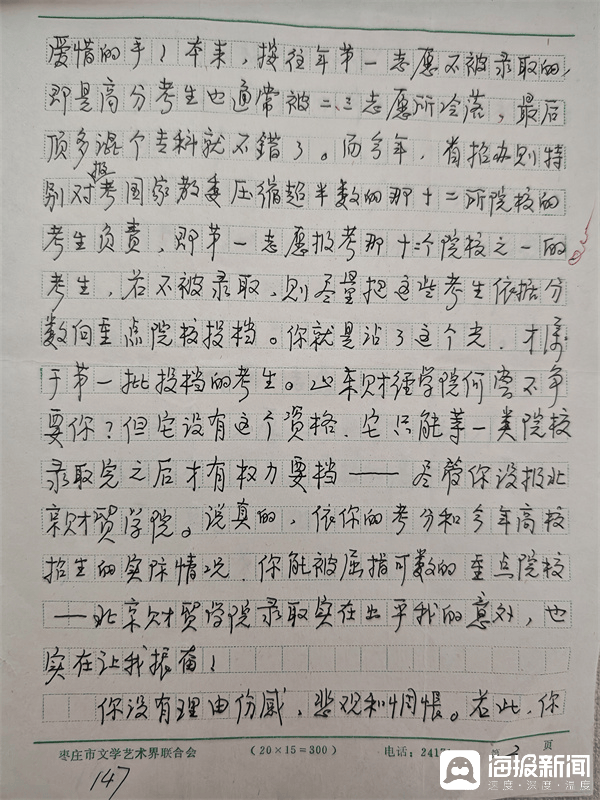 爱惜的手！本来，按往年第一志愿不被录取的，
即是高分考生也通常被二、三志愿所冷落，最后
顶多混个专科就不错了。而今年，省招办则特
别对报考国家教委压缩超半数的那十二所院校的
考生负责，即第一志愿报考那十二个院校之一的
考生，若不被录取，则尽量把这些考生依据分
数向重点院校投档。你就是沾了这个光，才属
于第一批投档的考生。山东财经学院何尝不争
要你？但它没有这个资格，它只能等一类院校
录取完之后才有权力要档——尽管你没报北
京财贸学院。说真的，依你的考分和今年高校
招生的实际情况，你能被屈指可数的重点院校
——北京财贸学院录取实在出乎我的意外，也
实在让我振奋！
你没有理由伤感，悲观和惆怅。若此，你
枣庄市文学艺术界联合会 (20×15=300) 电话：241 第2页
147
海报新闻
速度·深度·温度